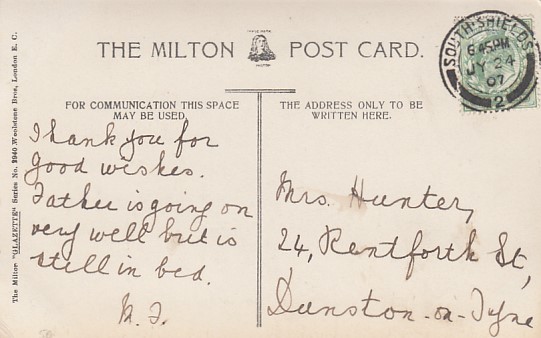 THE MILTON POST CARD.
SOUTH·SHIELDS
6 45 PM
JY 24
07
2
FOR COMMUNICATION THIS SPACE
MAY BE USED
THE ADDRESS ONLY TO BE
WRITTEN HERE.
Thank you for
good wishes.
Father is going on
very well but is
still in bed.
M. F.
Mrs. Hunter,
24, Rentforth St,
Dunston-on-Tyne
The Milton "GLAZETTE" Series No. Woolstone Bros., London E. C.